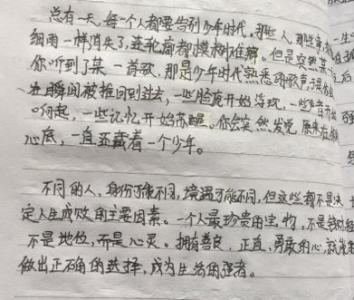 总有一天,每一个人都要告别少年时代。那些人,那些事,
细雨一样消失了,连轮廓都模糊难解。但是突然某一
你听到了某一首歌,那是少年时代熟悉的歌声,于是
瞬间被推回到过去,一些脸庞开始浮现,一些声音开始
响起,一些记忆开始苏醒。你会突然发现,原来在
心底,一直还藏着一个少年。
不同的人,身份可能不同,境遇可能不同,但这些都不是决
定人生成败的主要因素。一个人最珍贵的宝物,不是钱财
不是地位,而是心灵。拥有善良、正直、勇敢的心,就能
做出正确的选择,成为生活的强者。